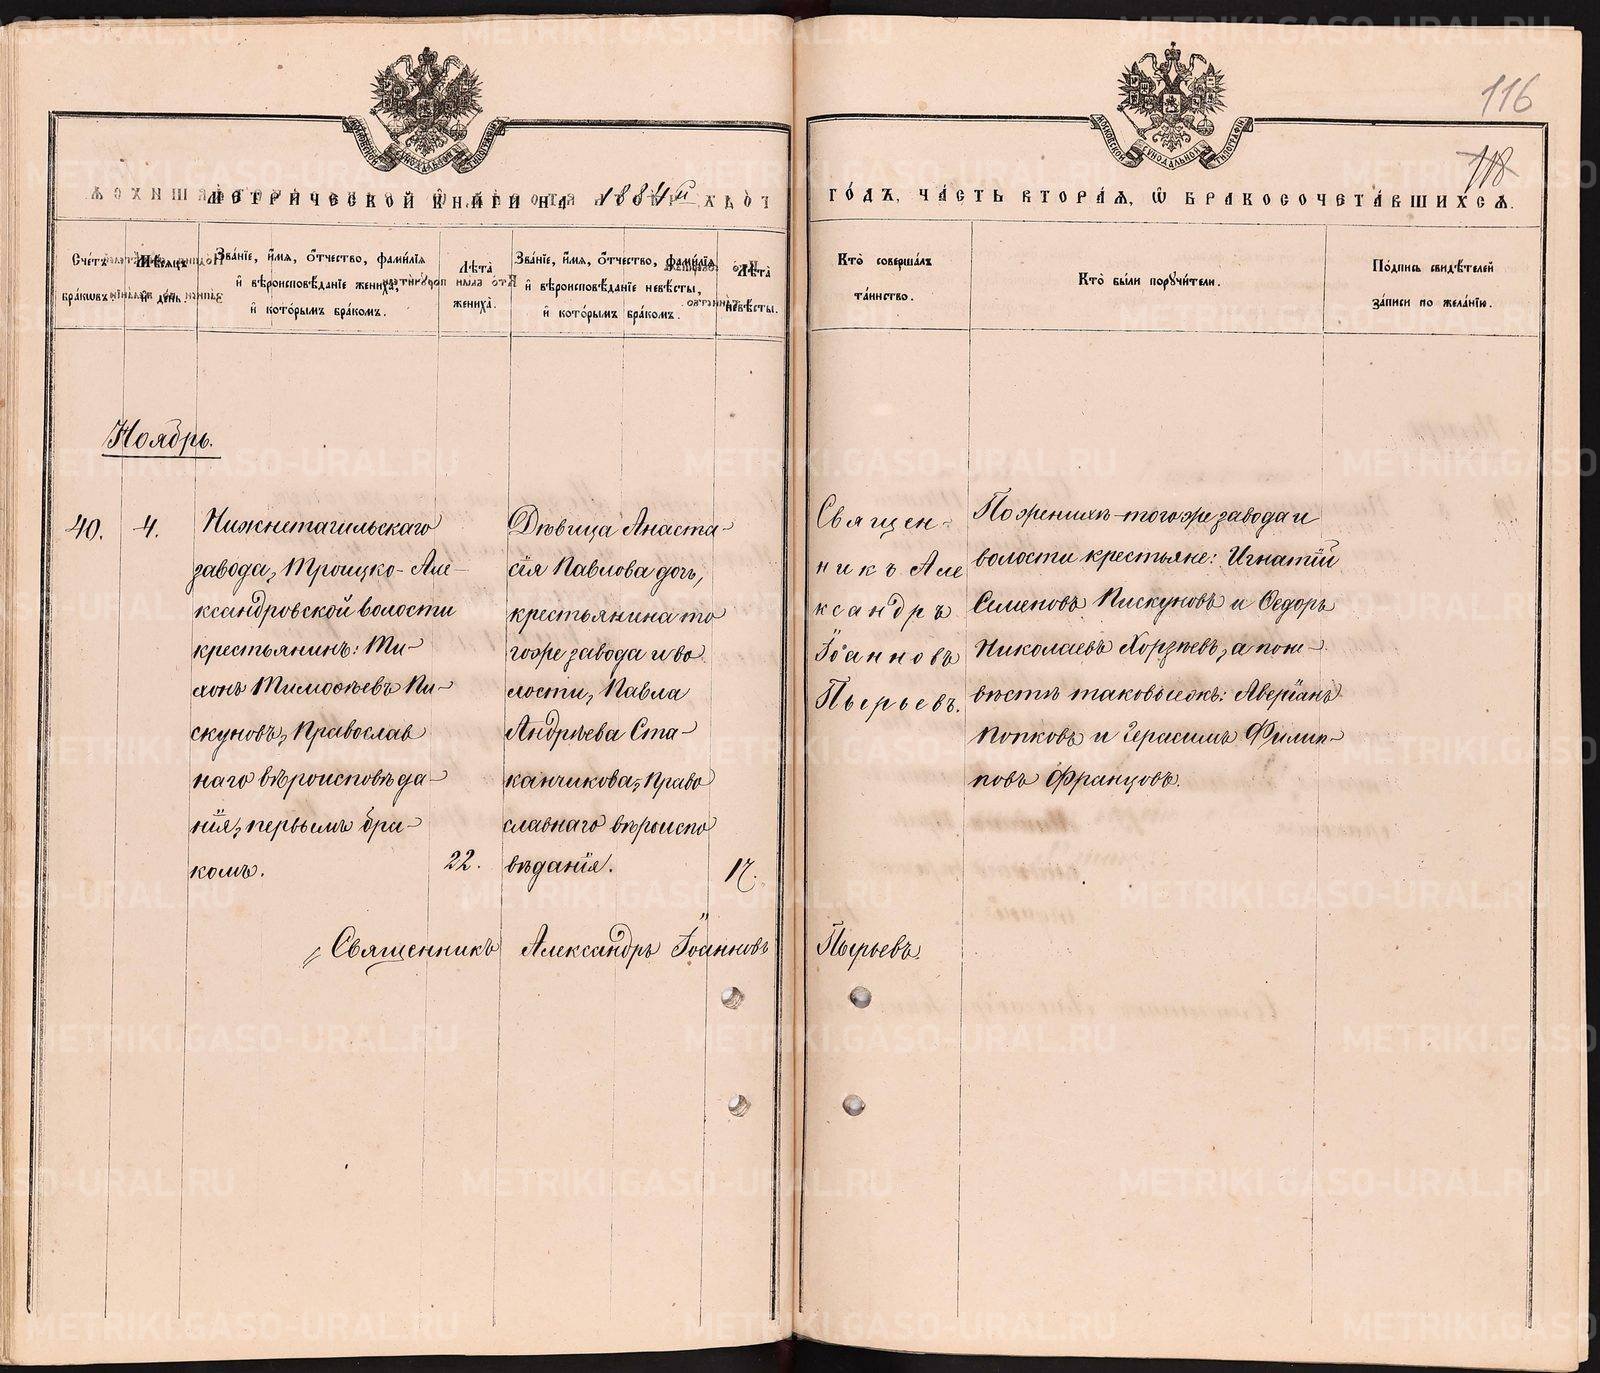 116
118
МОСКОВСКОЙ СУНОДАЛЬНОЙ ТИПОГРАФІИ
МОСКОВСКОЙ СУНОДАЛЬНОЙ ТИПОГРАФІИ
МЕТРИЧЕСКОЙ КНИГИ НА 1884й
ГО́ДЪ, ЧА́СТЬ ВТОРА́Я, Ѽ БРАКОСОЧЕТА́ВШИХСЯ.
Сче́тъ бра́ковъ.
Мѣ́сяцъ и҆ де́нь.
Зва́нїе, и҆́мя, ѻ҆́тчество, фами́лїя
и҆ вѣроисповѣ́данїе жениха̀,
и҆ кото́рымъ бра́комъ.
Лѣ́та
жениха̀.
Зва́нїе, и҆́мя, ѻ҆́тчество, фами́лїя
и҆ вѣроисповѣ́данїе невѣ́сты,
и҆ кото́рымъ бра́комъ.
Лѣ́та
невѣ́сты.
Кто̀ соверша́лъ
та́инство.
Кто̀ бы́ли порꙋчи́тели.
По́дпись свидѣ́телей
за́писи по жела́нїю.
Ноябрь.
40.
4.
Нижнетагильскаго
завода, Троицко-Але-
ксандровской волости
крестьянинъ: Ти-
хонъ Тимоѳеевъ Пи-
скуновъ, Православ
наго вѣроисповѣда-
нія, первымъ бра-
комъ.
22.
Дѣвица Анаста-
сія Павлова дочь,
крестьянина то
гоже завода и во
лости, Павла
Андрѣева Ста-
канчикова, Право
славнаго вѣроиспо
вѣданія.
17.
Священ-
никъ Але
ксандръ
Іоанновъ
Пырьевъ.
По женихѣ тогоже завода и
волости крестьяне: Игнатій
Семеновъ Пискуновъ и Ѳедоръ
Николаевъ Хорзѣевъ, а по не-
вѣстѣ таковыежъ: Аверіанъ
Попковъ и Герасимъ Филип-
повъ Францовъ.
Священникъ Александръ Іоанновъ Пырьевъ.
METRIKI.GASO-URAL.RU